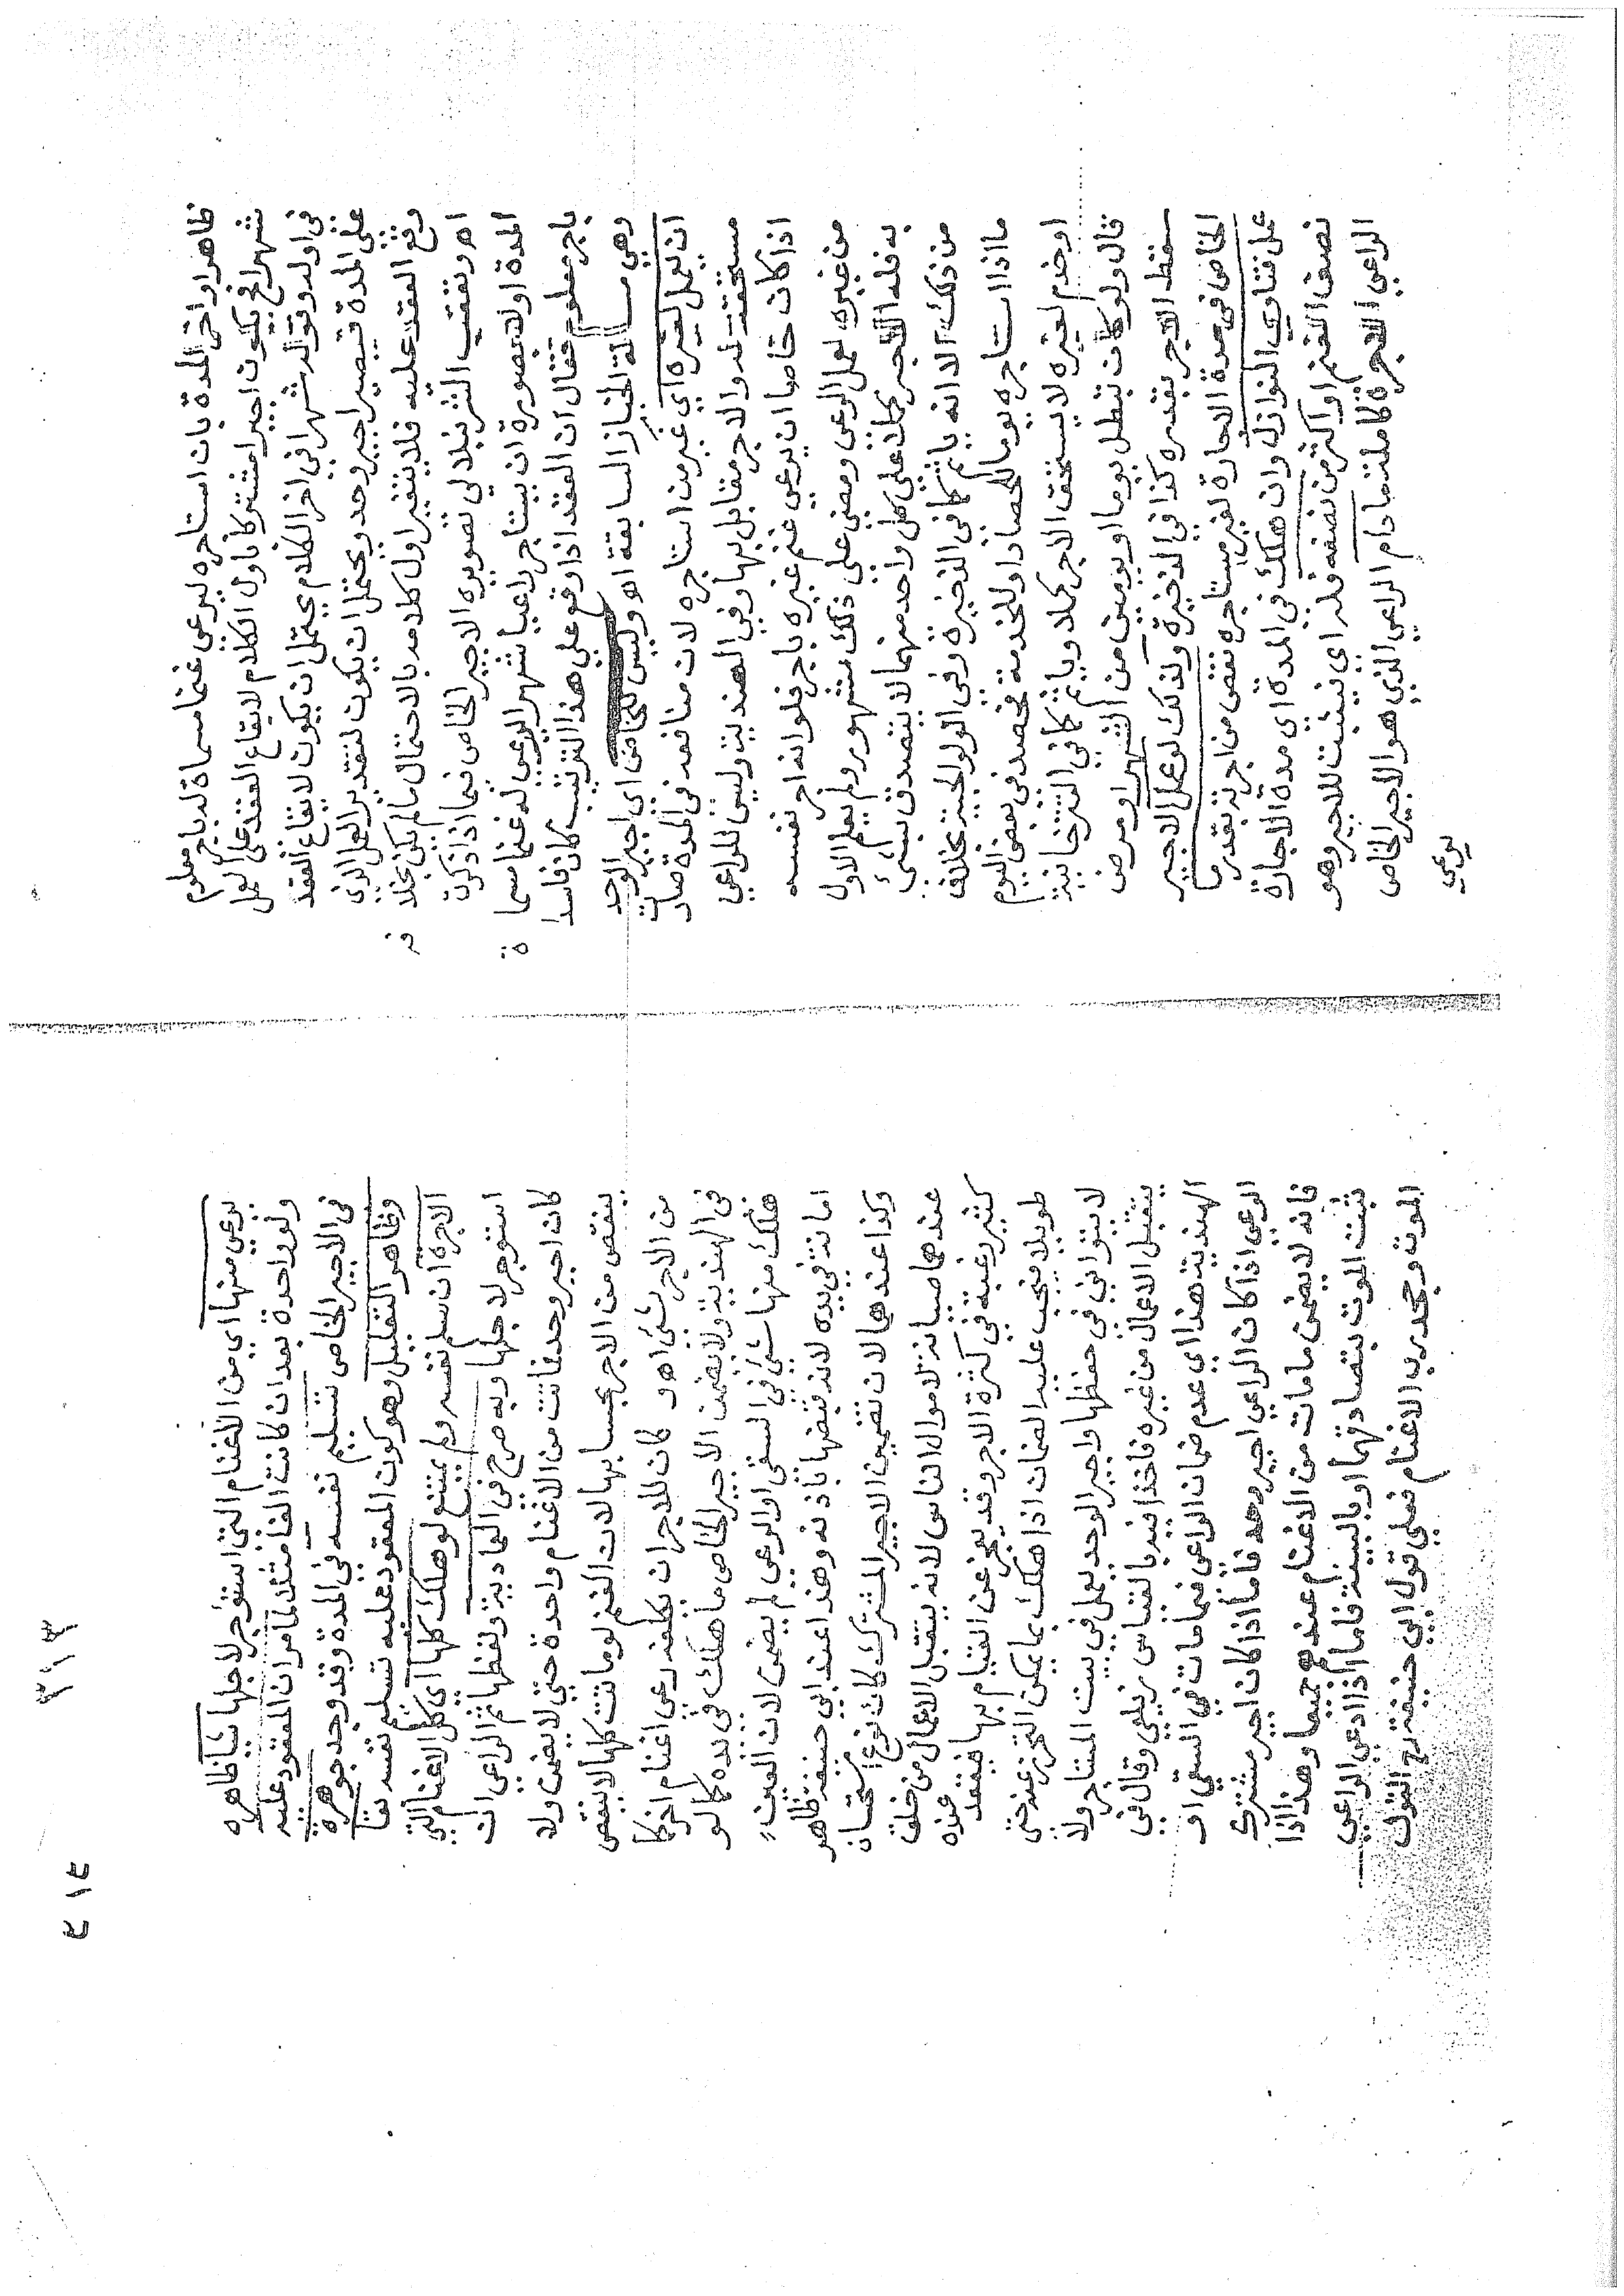 ظاهرا واخر المدة بان استاجره ليرعى غنما مسماة له باجر معلوم
شهرا فح يكون اجيرا مشتركا باول الكلام لايقاع العقد على العمل
فى اوله وقوله شهرا في اخر الكلام يحتمل ان يكون لايقاع العقد
على المدة فيصير اجير وحد ويحتمل ان يكون لتقدير العمل الذى
وقع العقد عليه فلا يتغير اول كلامه بالاحتمال ما لم يكن بخلافه
اه وتعقب الشرنبلالي تصويره الاجير الخاص فيما اذا ذكرت
المدة اولا بصورة ان يستاجر راعيا شهرا ليرعى له غنما مسماة
باجر معلوم فقال ان العقد اذا وقع على هذا الترتيب كان فاسدا
وهي مسالة الخباز السابقة اه وليس للخاص اى اجير الوحد
ان يعمل لغيره اي غير من استاجره لان منافعه فى المدة صارت
مستحقة له والاجر مقابل بها وفي الهندية وليس للراعي
اذا كان خاصا ان يرعى غنم غيره باجر فلو انه اجر نفسه
من غيره لعمل الرعى ومضى على ذلك شهور ولم يعلم الاول
به فله الاجر كملا على كل واحد منهما لا يتصدق بشئ
من ذلك الا انه ياثم كما فى الذخيرة وفي الولوالجية بخلاف
ما اذا استاجره يوما للحصاد او للخدمة فحصد فى بعض اليوم
او خدم لغيره لا يستحق الاجر كملا وياثم كما في التترخانية
قال ولو كان تبطل يوما او يومين من الشهر او مرض
سقط الاجر بقدره كذا في الذخيرة ولذلك لو عمل الاجير
الخاص فى مدة الاجارة لغير مستاجره نقص من اجرته بقدر ما
عمل فتاوى النوازل وان هلك فى المدة اى مدة الاجارة
نصف الغنم او اكثر من نصفه فله اى فيثبت للاجير وهو
الراعي الاجرة كاملة ما دام الراعي الذي هو الاجير الخاص
يرعي
٣١٣
٤١٤
يرعي منها اي من الاغنام التى استؤجر لاجلها شيا ظاهره
ولو واحدة بعد ان كانت الفا مثلا لما مر ان المعقود عليه
فى الاجير الخاص تسليم نفسه فى المدة وقد وجد جوهره
وظاهر التعليل وهو كون المعقود عليه تسليم نفسه بقا
الاجرة ان سلم نفسه ولم يمتنع لو هلك كلها اى كل الاغنام التي
استؤجر لاجلها وبه صرح فى العمادية ولفظها ثم الراعي ان
كان اجير وحد فماتت من الاغنام واحدة حتى لا يضمن ولا
ينقص من الاجر بحسابها لان الغنم لو ماتت كلها لا ينقص
من الاجر شئ اه كان للاجر ان يكلفه رعى اغنام اخر كما
فى الهندية ولا يضمن الاجير الخاص ما هلك فى يده كما لو
هلك منها شئ في السقى او الرعى لم يضمن لان العين
امانة في يده لانه قبضها باذنه وهذا عند ابى حنيفة ظاهر
وكذا عندهما لان تضمين الاجير المشترك كان نوع استحسان
عندهما صيانة لاموال الناس لانه يتقبل الاعمال من خلق
كثير رغبة في كثرة الاجر وقد يعجز عن القيام بها فيقعد عنده
طويلا فيجب عليه الضمان اذا هلك بما يمكن التحرز عنه حتى
لا يتوانى في حفظها واجير الوحد يعمل فى بيت المستاجر ولا
يتقبل الاعمال من غيره فاخذا فيه بالقياس زيلعي وقال في
الهندية هذا اي عدم ضمان الراعي فيما مات في السقي او
الرعي اذا كان الراعي اجير وحد فاما اذا كان اجير مشترك
فانه لا يضمن ما مات من الاغنام عندهم جميعا وهذا اذا
ثبت الموت بتصادقهما او بالبينة فاما اذا ادعى الراعي
الموت وجحد رب الاغنام فعلي قول ابي حنيفة رح القول